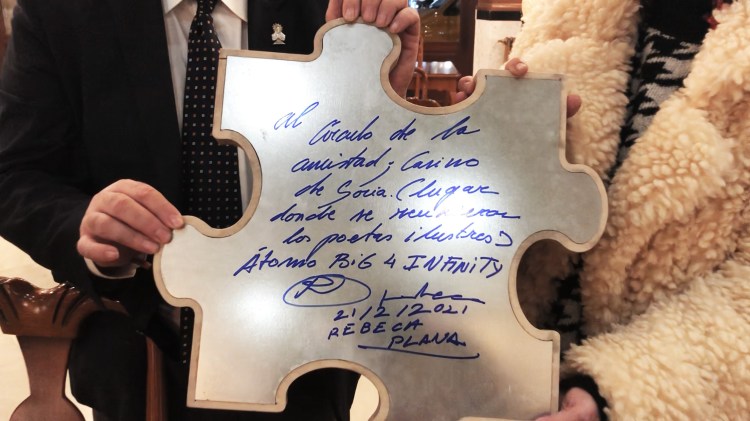 al Círculo de la
amistad, Casino
de Soria. (lugar
donde se reunieron
los poetas ilustres)
Átomo BiG 4 INFiNiTY
21/2/2021
REBECA
PLANA